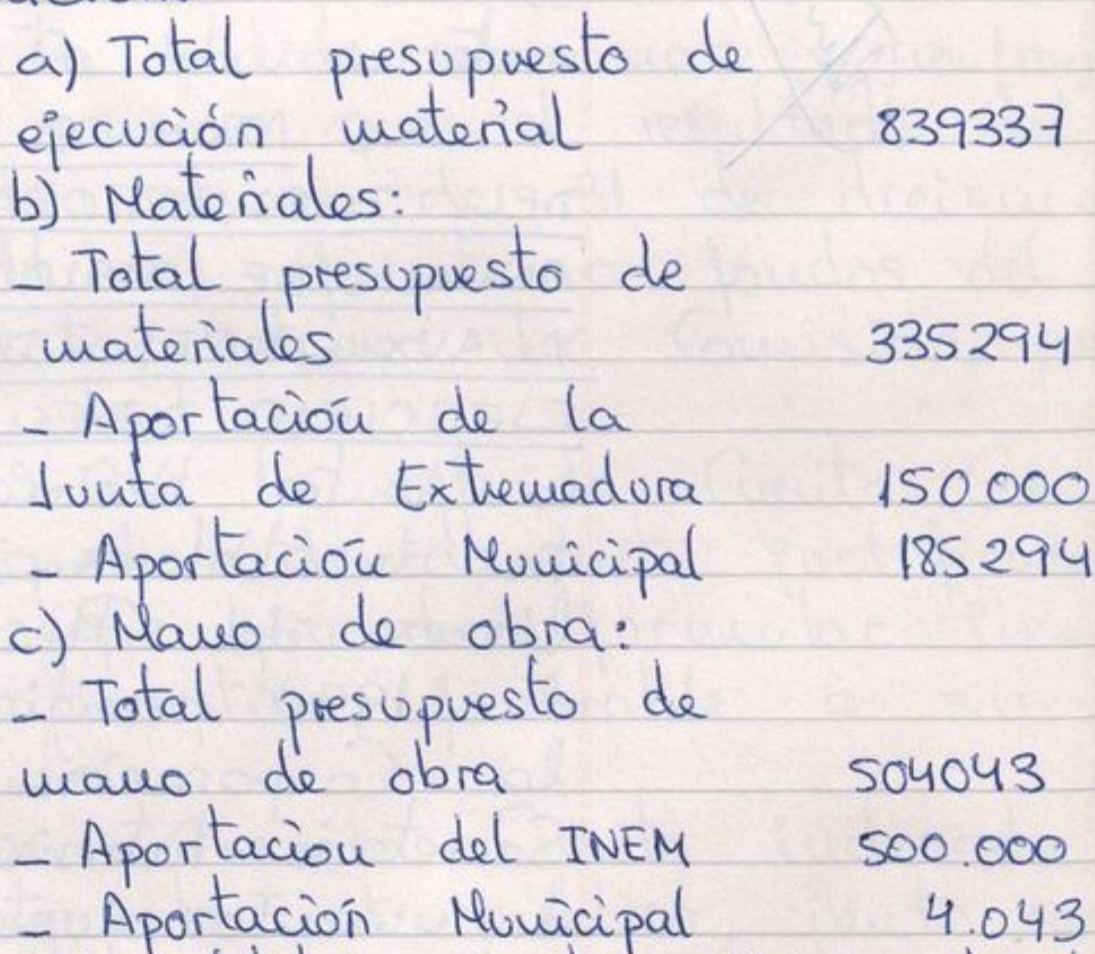 a) Total presupuesto de
ejecución material 839337
b) Materiales:
- Total presupuesto de
materiales 335294
- Aportación de la
Junta de Extremadura 150000
- Aportación Municipal 185294
c) Mano de obra:
- Total presupuesto de
mano de obra 504043
- Aportación del INEM 500.000
- Aportación Municipal 4.043